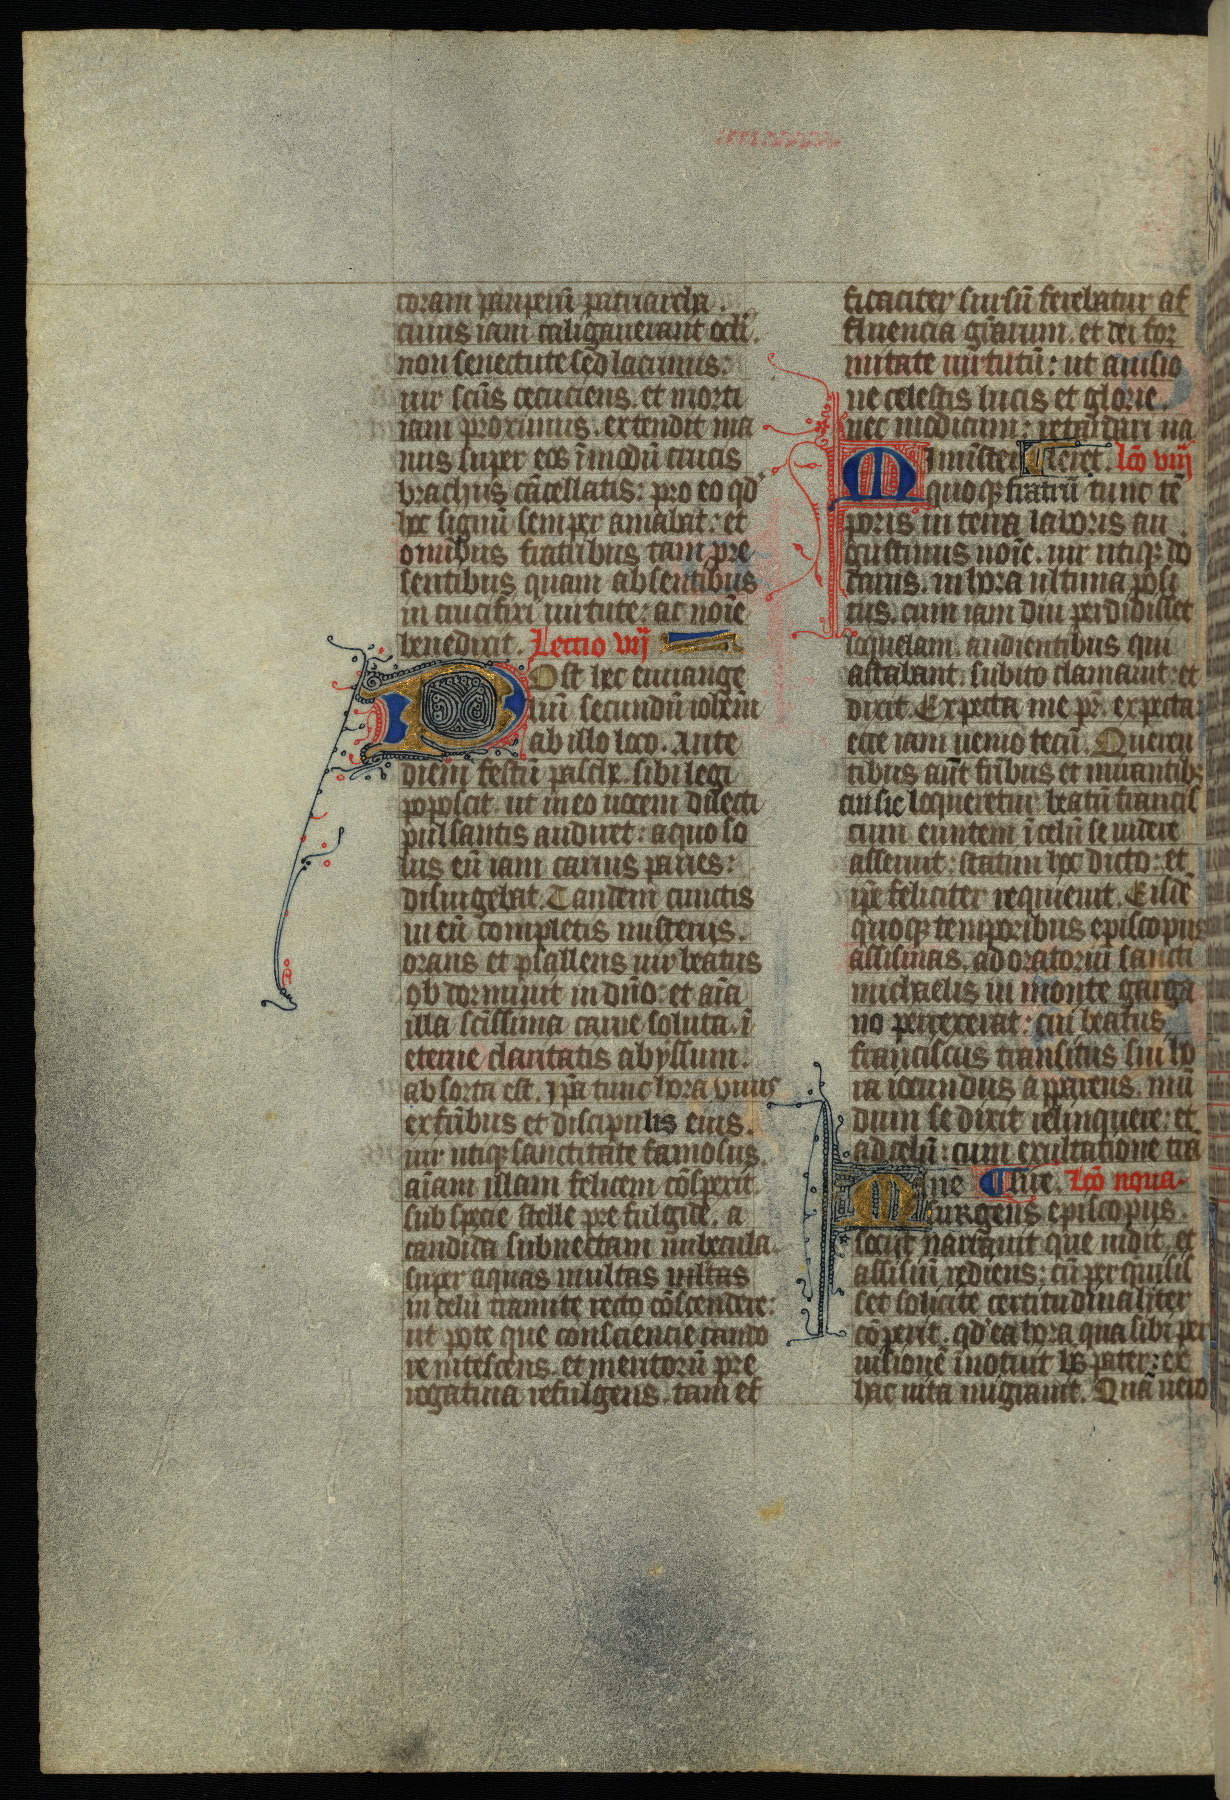 coram pauperū patriarcha.
cuius iam caligauerant ocli.
non senectute sed lacrimis:
uir scūs cecuciens. et morti
iam proximus. extendit ma
nus super eos ī modū crucis
brachiis cācellatis: pro eo qd
hoc signū semper amabat: et
omībus fratribus tam pre
sentibus quam absentibus
in crucifixi uirtute: ac noīe
benedixit. Lectio vij
Post hec euuange
liū secundū iohem
ab illo loco. Ante
diem festū pasche. sibi legi
poposcit. ut in eo uocem dilecti
pulsantis audiret: a quo so
lus eū iam carnis paries:
disiungebat. Tandem cunctis
in eū completis misteriis.
orans et psallens uir beatus
obdormiuit in dn̄o: et aīa
illa scīssima carne soluta. ī
eterne claritatis abyssum:
absorta est. Ipa tunc hora vnus
ex frībus et discipulis eius.
uir utiqz sanctitate famosus.
aīam illam felicem cōspexit.
sub specie stelle prefulgide. a
candida subuectam nubecula.
super aquas multas
in celū tramite recto cōscendere:
ut pote que consciencie cando
re nitescens. et meritorū pre
rogatiua refulgens. tam ef
ficaciter sursū ferebatur af
fluencia gr̄arum. et dei for
mitate uirtutū: ut a uisio
ne celestis lucis et glorie.
nec modicum: retardari ua
leret. Lcō viij
Minister quoqz fratrū tunc tē
poris in terra laboris au
gustinus noīe. uir utiqz do
ctus. in hora ultima posi
tus. cum iam diu perdidisset
loquelam. audientibus qui
astabant. subito clamauit: et
dixit. Expecta me pr̄. expecta:
ecce iam uenio tecū. Queren
tibus aūt frībus et mirantibz
cui sic loqueretur beatū francis
cum euntem ī celū se uidere
asseruit: statim hoc dicto: et
ipe feliciter requieuit. Eisdē
quoqz temporibus episcopus
assisinas. ad oratoriū sancti
michaelis in monte garga
no perrexerat: cui beatus
franciscus transitus sui ho
ra iocundus apparens. mū
dum se dixit relinquere: et
ad celū: cum exultatione tra
nsire. Lcō nona.
Mane surgens episcopus.
sociis narrauit que uidit. et
assisiū rediens: cū perquisis
set solicite certitudinaliter
cōperit. qd ea hora qua sibi per
uisionē īnotuit bs pater: ex
hac uita migrauit. Quā uero